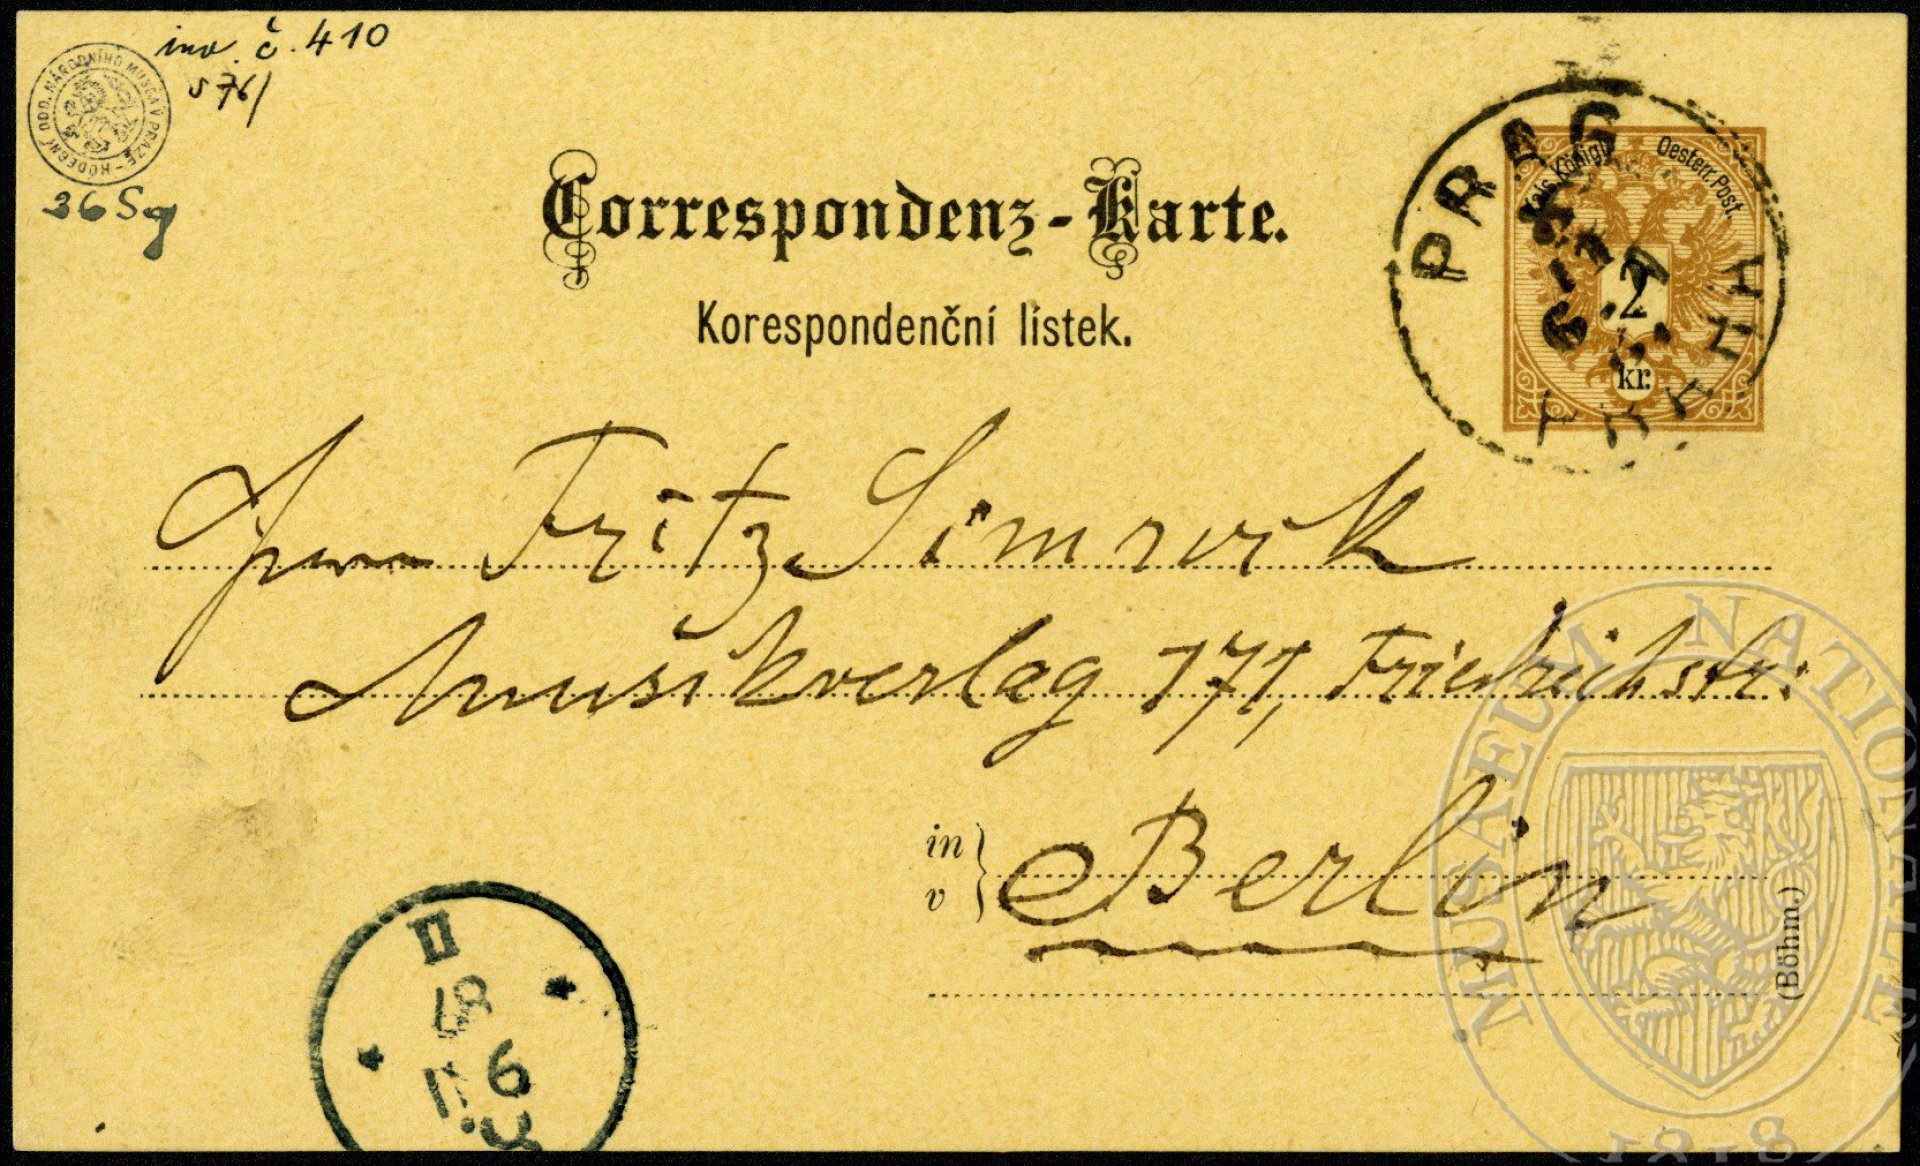 inv. č. 410
S 76/
HUDEBNÍ ODD. NÁRODNÍHO MUSEA V PRAZE
36 Sg
Correspondenz-Karte.
Korespondenční lístek.
PRAG
Kais. Königl. Oesterr. Post.
2
kr.
Herrn Fritz Simrock
Musikverlag 171, Friedrichstr:
in
v
Berlin
(Böhm.)
II
MUSAEUM NATIONALE
1818